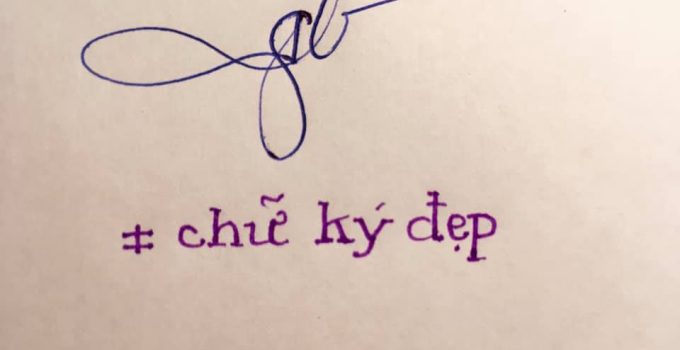 ‡ chữ ký đẹp